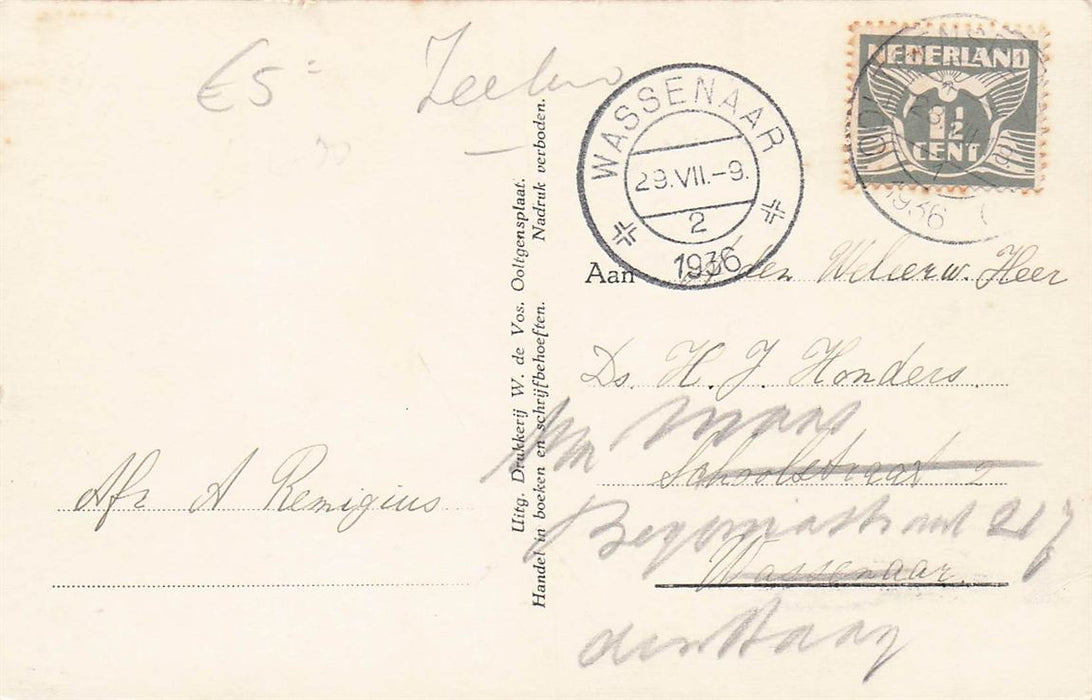 €5=
Zeeland
NEDERLAND
1½
CENT
1936
WASSENAAR
29.VII.-9.
2
1936
Uitg. Drukkerij W. de Vos. Ooltgensplaat.
Handel in boeken en schrijfbehoeften. Nadruk verboden.
Aan den Weleerw. Heer
Ds. H. J. Honders.
Maas
Schoolstraat 2
Begoniastraat 217
Wassenaar.
den Haag
Afz A Remigius